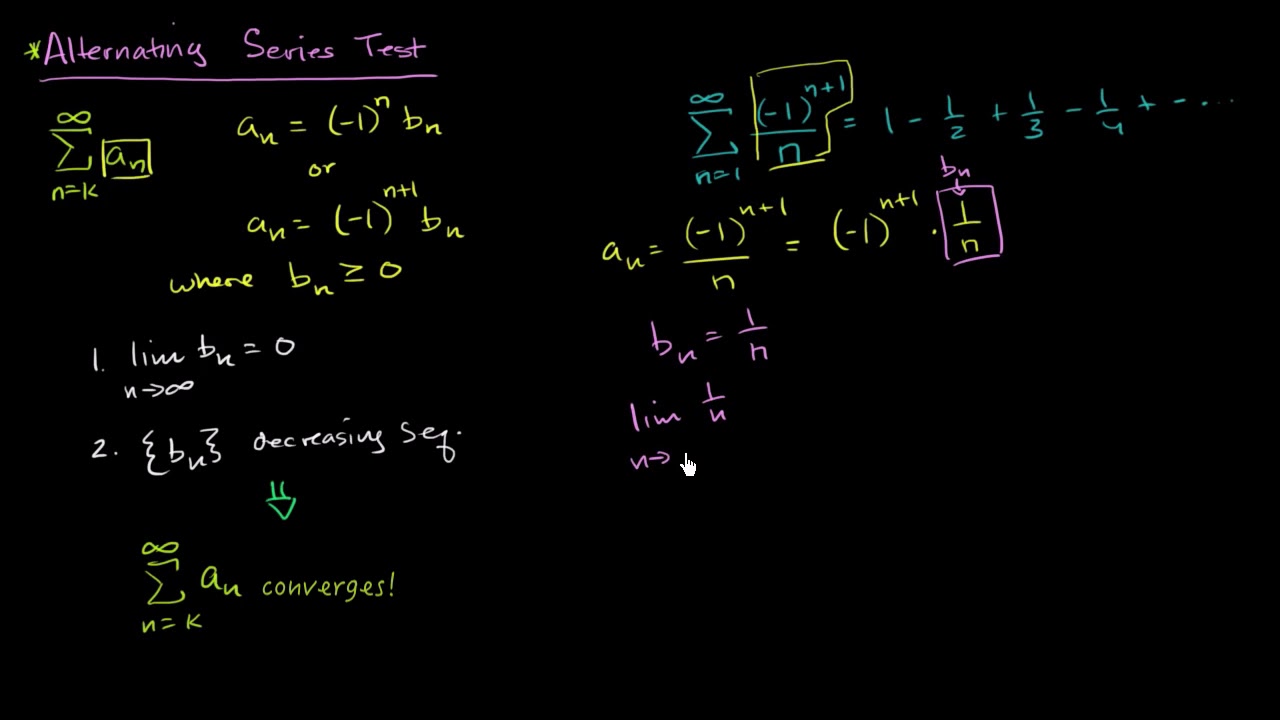 *Alternating Series Test
∞
∑ aₙ
n=k
aₙ = (-1)ⁿ bₙ
or
aₙ = (-1)ⁿ⁺¹ bₙ
where bₙ ≥ 0
1. lim bₙ = 0
n→∞
2. {bₙ} decreasing seq.
⇓
∞
∑ aₙ converges!
n=k
∞
∑ (-1)ⁿ⁺¹/n = 1 - 1/2 + 1/3 - 1/4 + - ....
n=1
bₙ
↓
aₙ = (-1)ⁿ⁺¹/n = (-1)ⁿ⁺¹ · 1/n
bₙ = 1/n
lim 1/n
n→